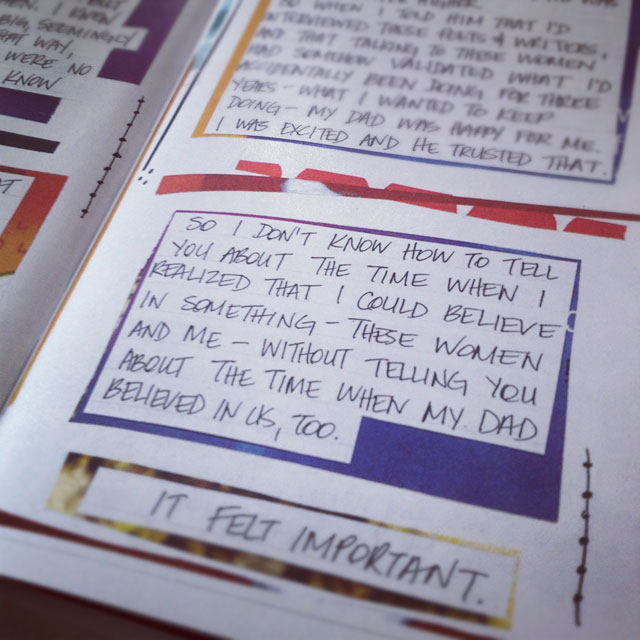 . I KNEW
BIG, SEEMINGLY
THAT WAY,
WERE NO
KNOW
SO WHEN I TOLD HIM THAT I'D
INTERVIEWED THESE POETS & WRITERS,
AND THAT TALKING TO THESE WOMEN
HAD SOMEHOW VALIDATED WHAT I'D
ACCIDENTALLY BEEN DOING FOR THREE
YEARS - WHAT I WANTED TO KEEP
DOING - MY DAD WAS HAPPY FOR ME.
I WAS EXCITED AND HE TRUSTED THAT.
SO I DON'T KNOW HOW TO TELL
YOU ABOUT THE TIME WHEN I
REALIZED THAT I COULD BELIEVE
IN SOMETHING - THESE WOMEN
AND ME - WITHOUT TELLING YOU
ABOUT THE TIME WHEN MY DAD
BELIEVED IN US, TOO.
IT FELT IMPORTANT.